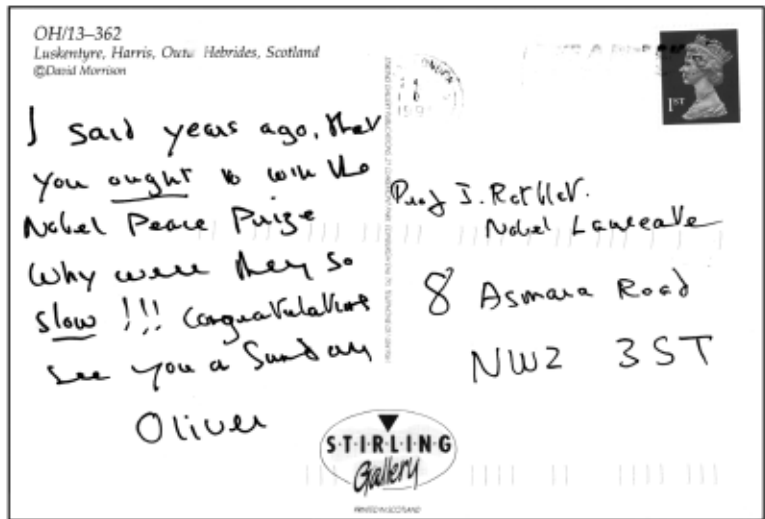 OH/13–362
Luskentyre, Harris, Outer Hebrides, Scotland
©David Morrison
1ST
I said years ago, that
you ought to win the
Nobel Peace Prize
Why were they so
slow !!! Congratulations
See you a Sunday
Oliver
Prof J. Rotblat.
Nobel Laureate
8 Asmara Road
NW2 3ST
STIRLING
Gallery
PRINTED IN SCOTLAND